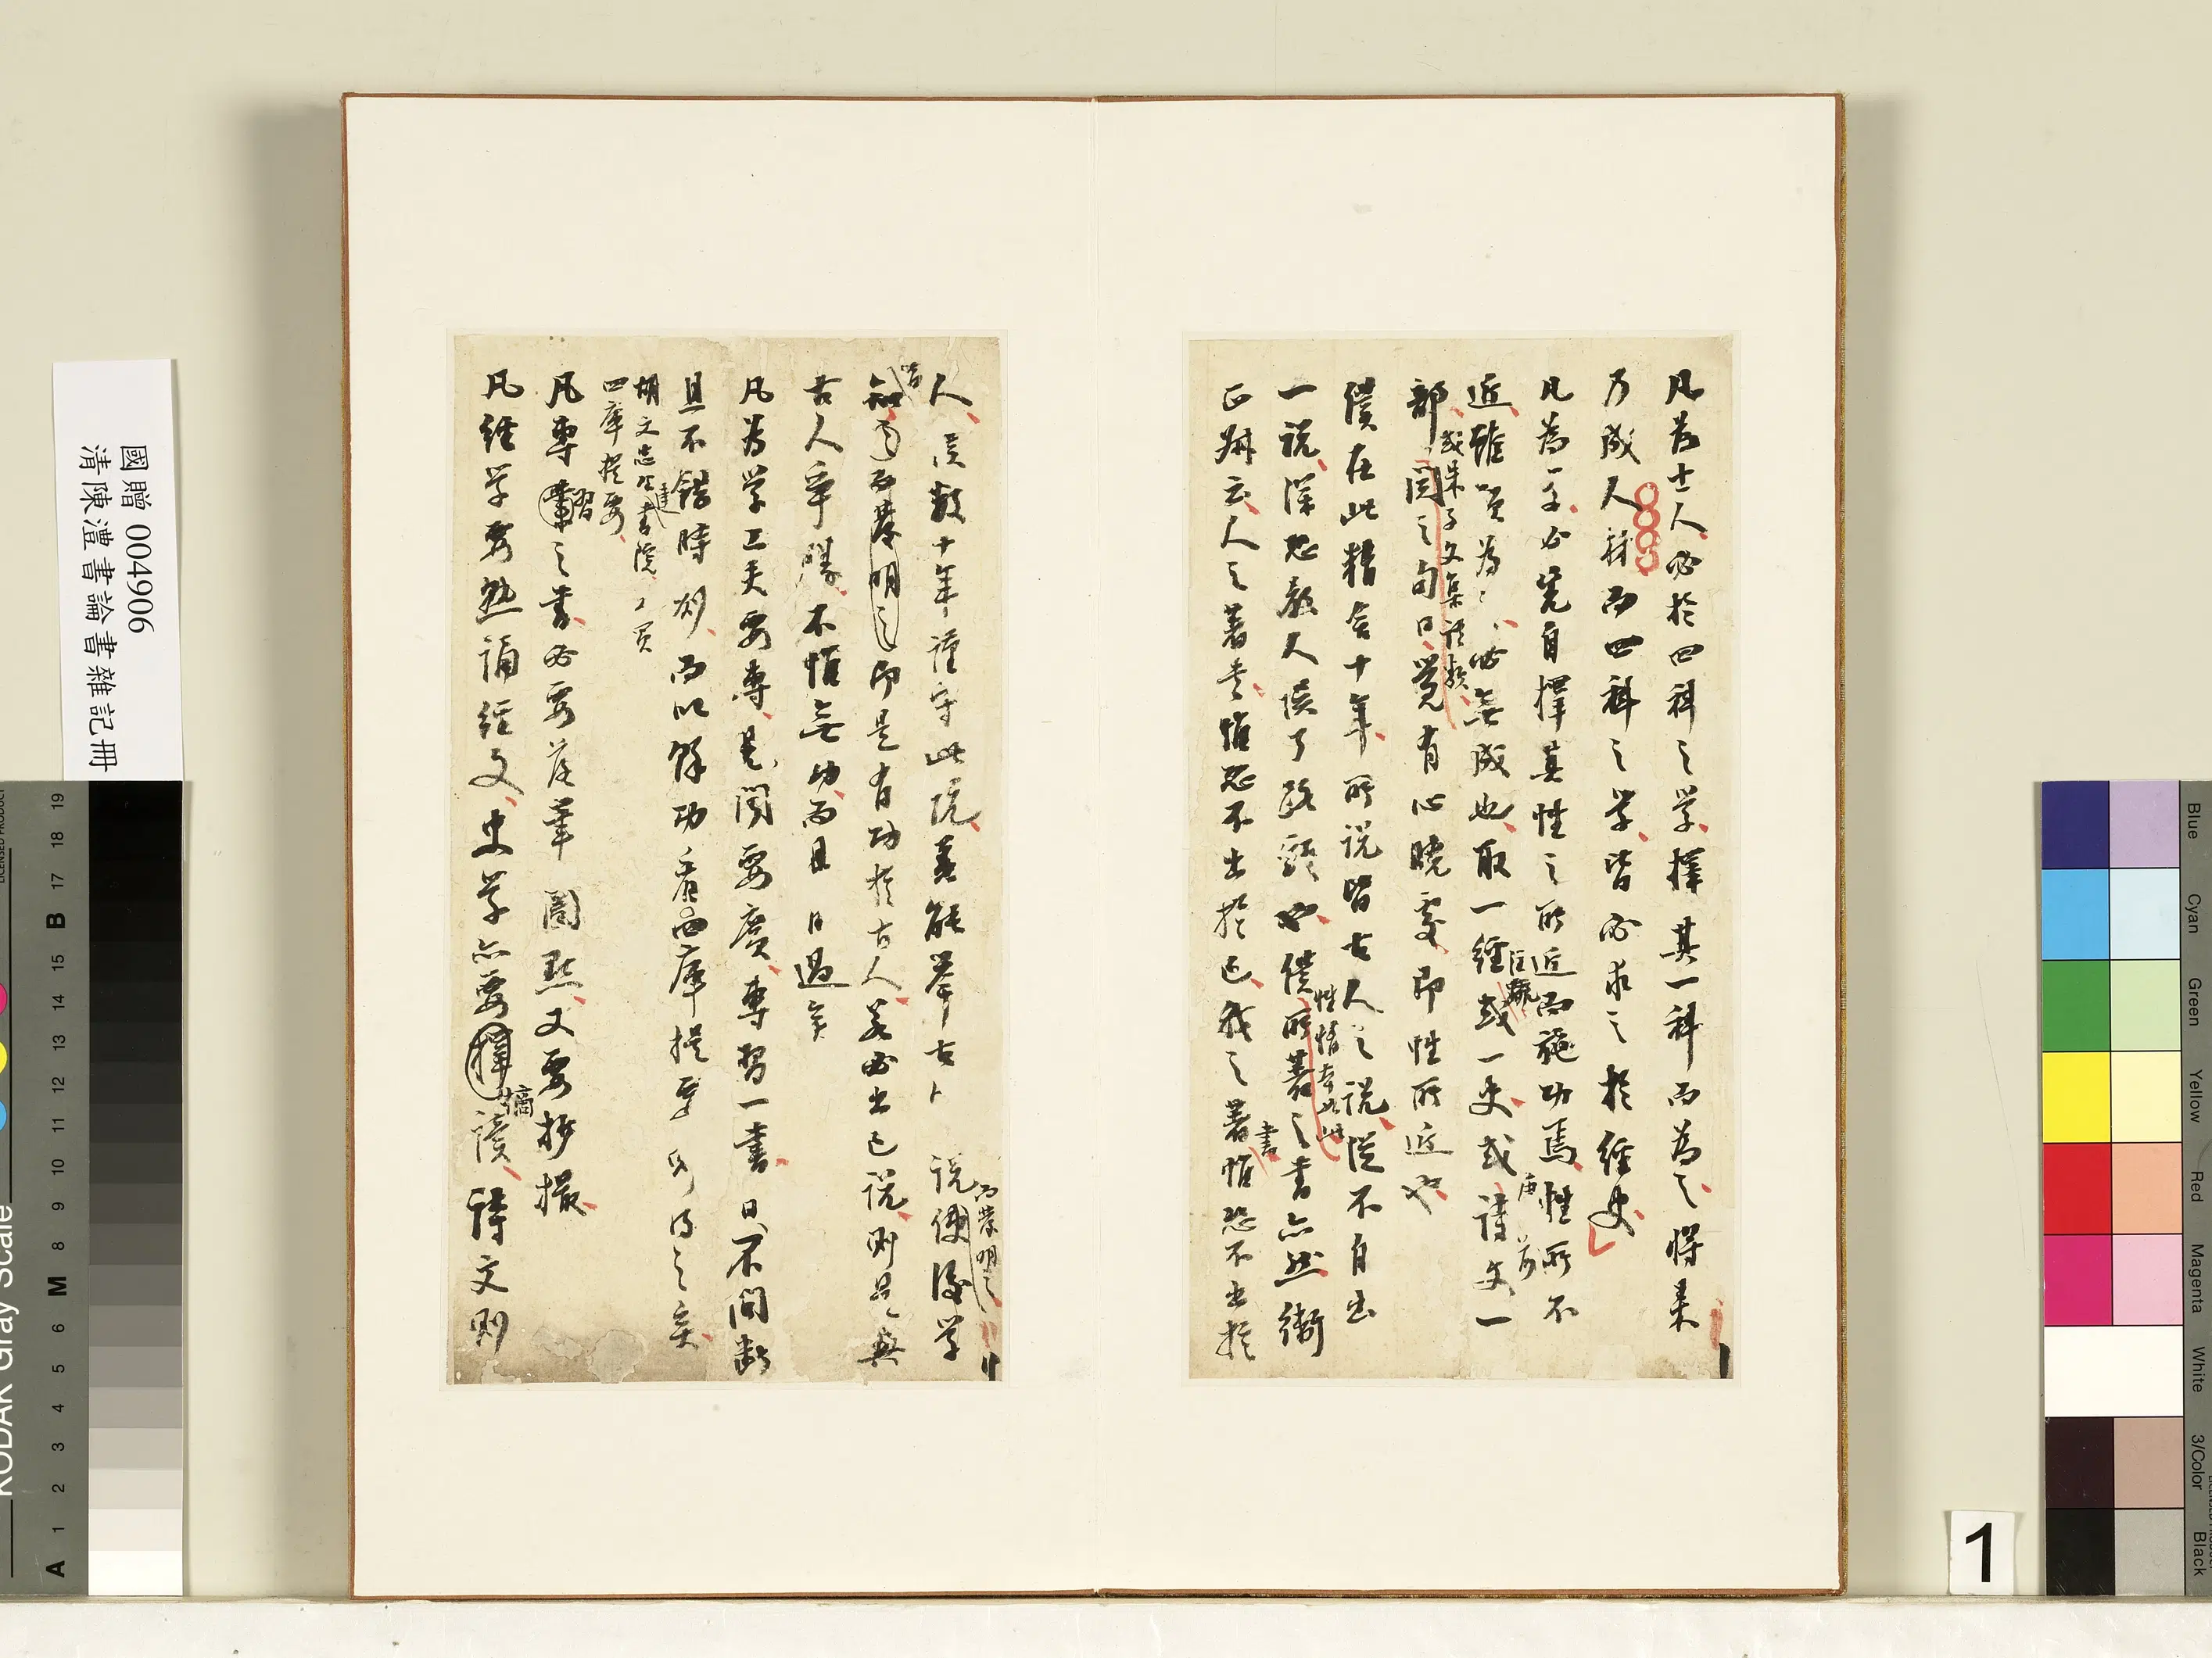 凡為士人必於四科之學擇其一科而為之將来
乃成人材而四科之學皆必求之於經史
凡為學必先自擇其性之所近而施功焉性所不
近雖勉為之必無成也取一經或一史或諸文一
或朱子文集語類
部閲之旬日覺有心曉處即性所近也
僕在此精舍十年所説皆古人之説從不自出
一説深恐教人誤了路頭也僕所著之書亦然衛
正叔云人之著書惟恐不出於己我之著書惟恐不出於
人僕數十年謹守此説若能舉古人説使後學
而發明之
知而發明之即是有功於古人若必出己説則是與
古人爭勝不惟無功而且有過矣
凡為學工夫要專見聞要廣專習一書日日不間斷
且不錯時刻而以餘功看四庫提要則得之矣
四庫提要
凡專習之書必要落筆圈點又要抄撮
凡經學要熟誦經文史學亦要摘讀詩文則
國贈 004906
清陳澧書論書雜記冊
1
KODAK Gray Scale
A 1 2 3 4 5 6 M 8 9 10 11 12 13 14 15 B 17 18 19
Blue
Cyan
Green
Yellow
Red
Magenta
White
3/Color
Black